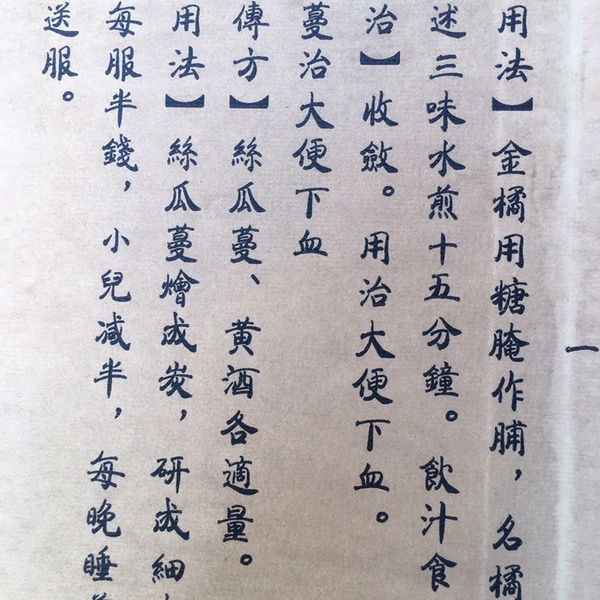 一
用法】金橘用糖腌作脯，名橘
述三味水煎十五分鐘。飲汁食
治】收斂。用治大便下血。
蔓治大便下血
傳方】絲瓜蔓、黃酒各適量。
用法】絲瓜蔓燴成炭，研成細
每服半錢，小兒減半，每晚睡
送服。